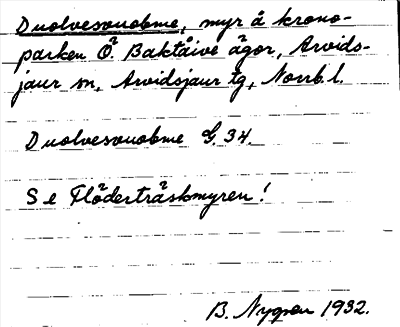 Duolvesvuobme, myr å krono-
parken Ö. Baktåive ägor, Arvids-
jaur sn, Arvidsjaur tg, Norrb. l.
Duolvesvuobme G. 34.
Se Flöderträskmyren!
B. Nygren 1932.